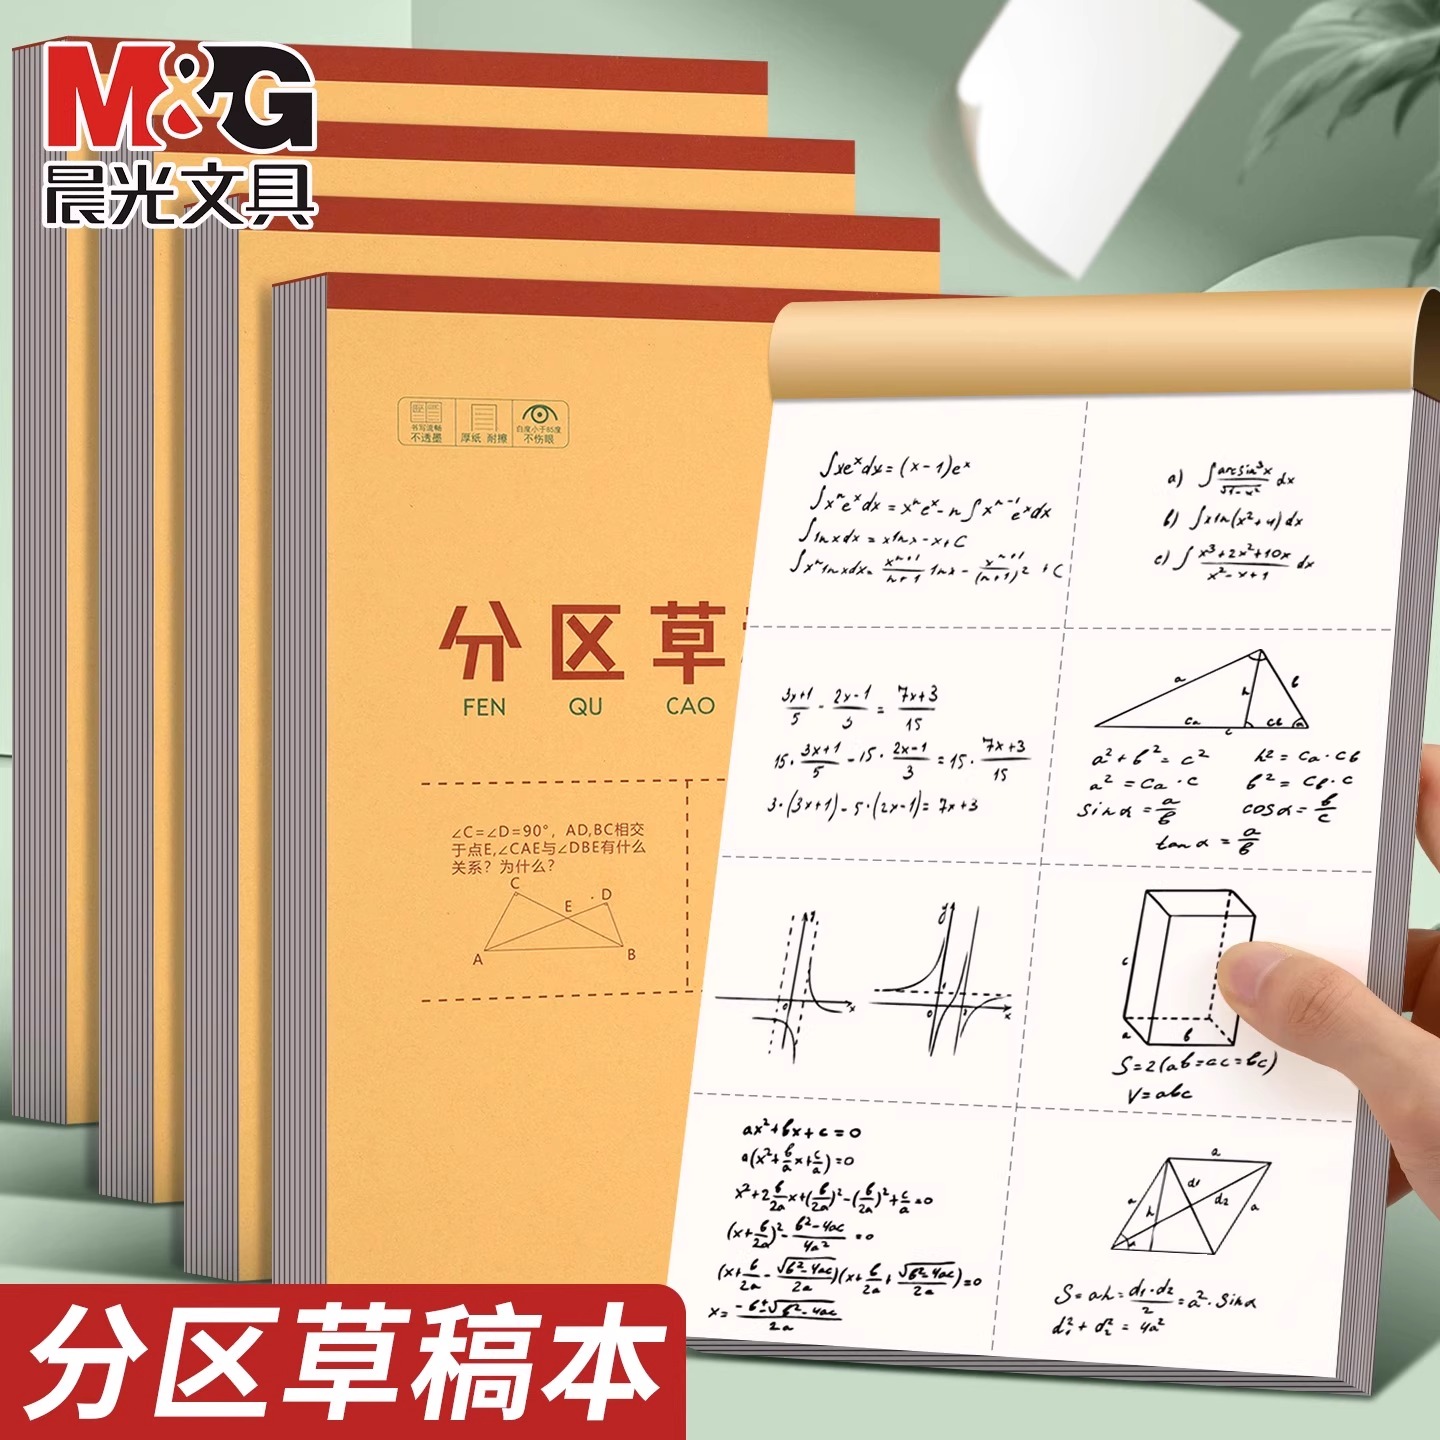 M&G
晨光文具
书写流畅
不透墨
厚纸 耐擦
白度小于85度
不伤眼
分区草
FEN QU CAO
∠C=∠D=90°，AD,BC相交
于点E,∠CAE与∠DBE有什么
关系？为什么？
C
D
E
A
B
∫xeˣdx=(x-1)eˣ
∫xⁿeˣdx=xⁿeˣ-n∫xⁿ⁻¹eˣdx
∫lnxdx=xlnx-x+C
∫xⁿlnxdx=xⁿ⁺¹/(n+1) lnx-xⁿ⁺¹/(n+1)²+C
a) ∫arcsin³x/√(1-x²) dx
b) ∫xln(x²+4)dx
c) ∫(x³+2x²+10x)/(x²-x+1) dx
(3x+1)/5 - (2x-1)/3 = (7x+3)/15
15·(3x+1)/5 - 15·(2x-1)/3 = 15·(7x+3)/15
3·(3x+1)-5·(2x-1)=7x+3
a
h
b
ca
cb
c
a²+b²=c²
h²=ca·cb
a²=ca·c
b²=cb·c
sinα=a/b
cosα=b/c
tanα=a/b
y
0
x
y
1
0
2
x
c
a
b
S=2(ab=ac=bc)
V=abc
ax²+bx+c=0
a(x²+b/a x+c/a)=0
x²+2b/2a x+(b/2a)²-(b/2a)²+c/a=0
(x+b/2a)²-(b²-4ac)/4a²=0
(x+b/2a-√(b²-4ac)/2a)(x+b/2a+√(b²-4ac)/2a)=0
x=(-b±√(b²-4ac))/2a
a
d1
a
h
d2
a
S=ah=d₁·d₂/2=a²·sinα
d₁²+d₂²=4a²
分区草稿本